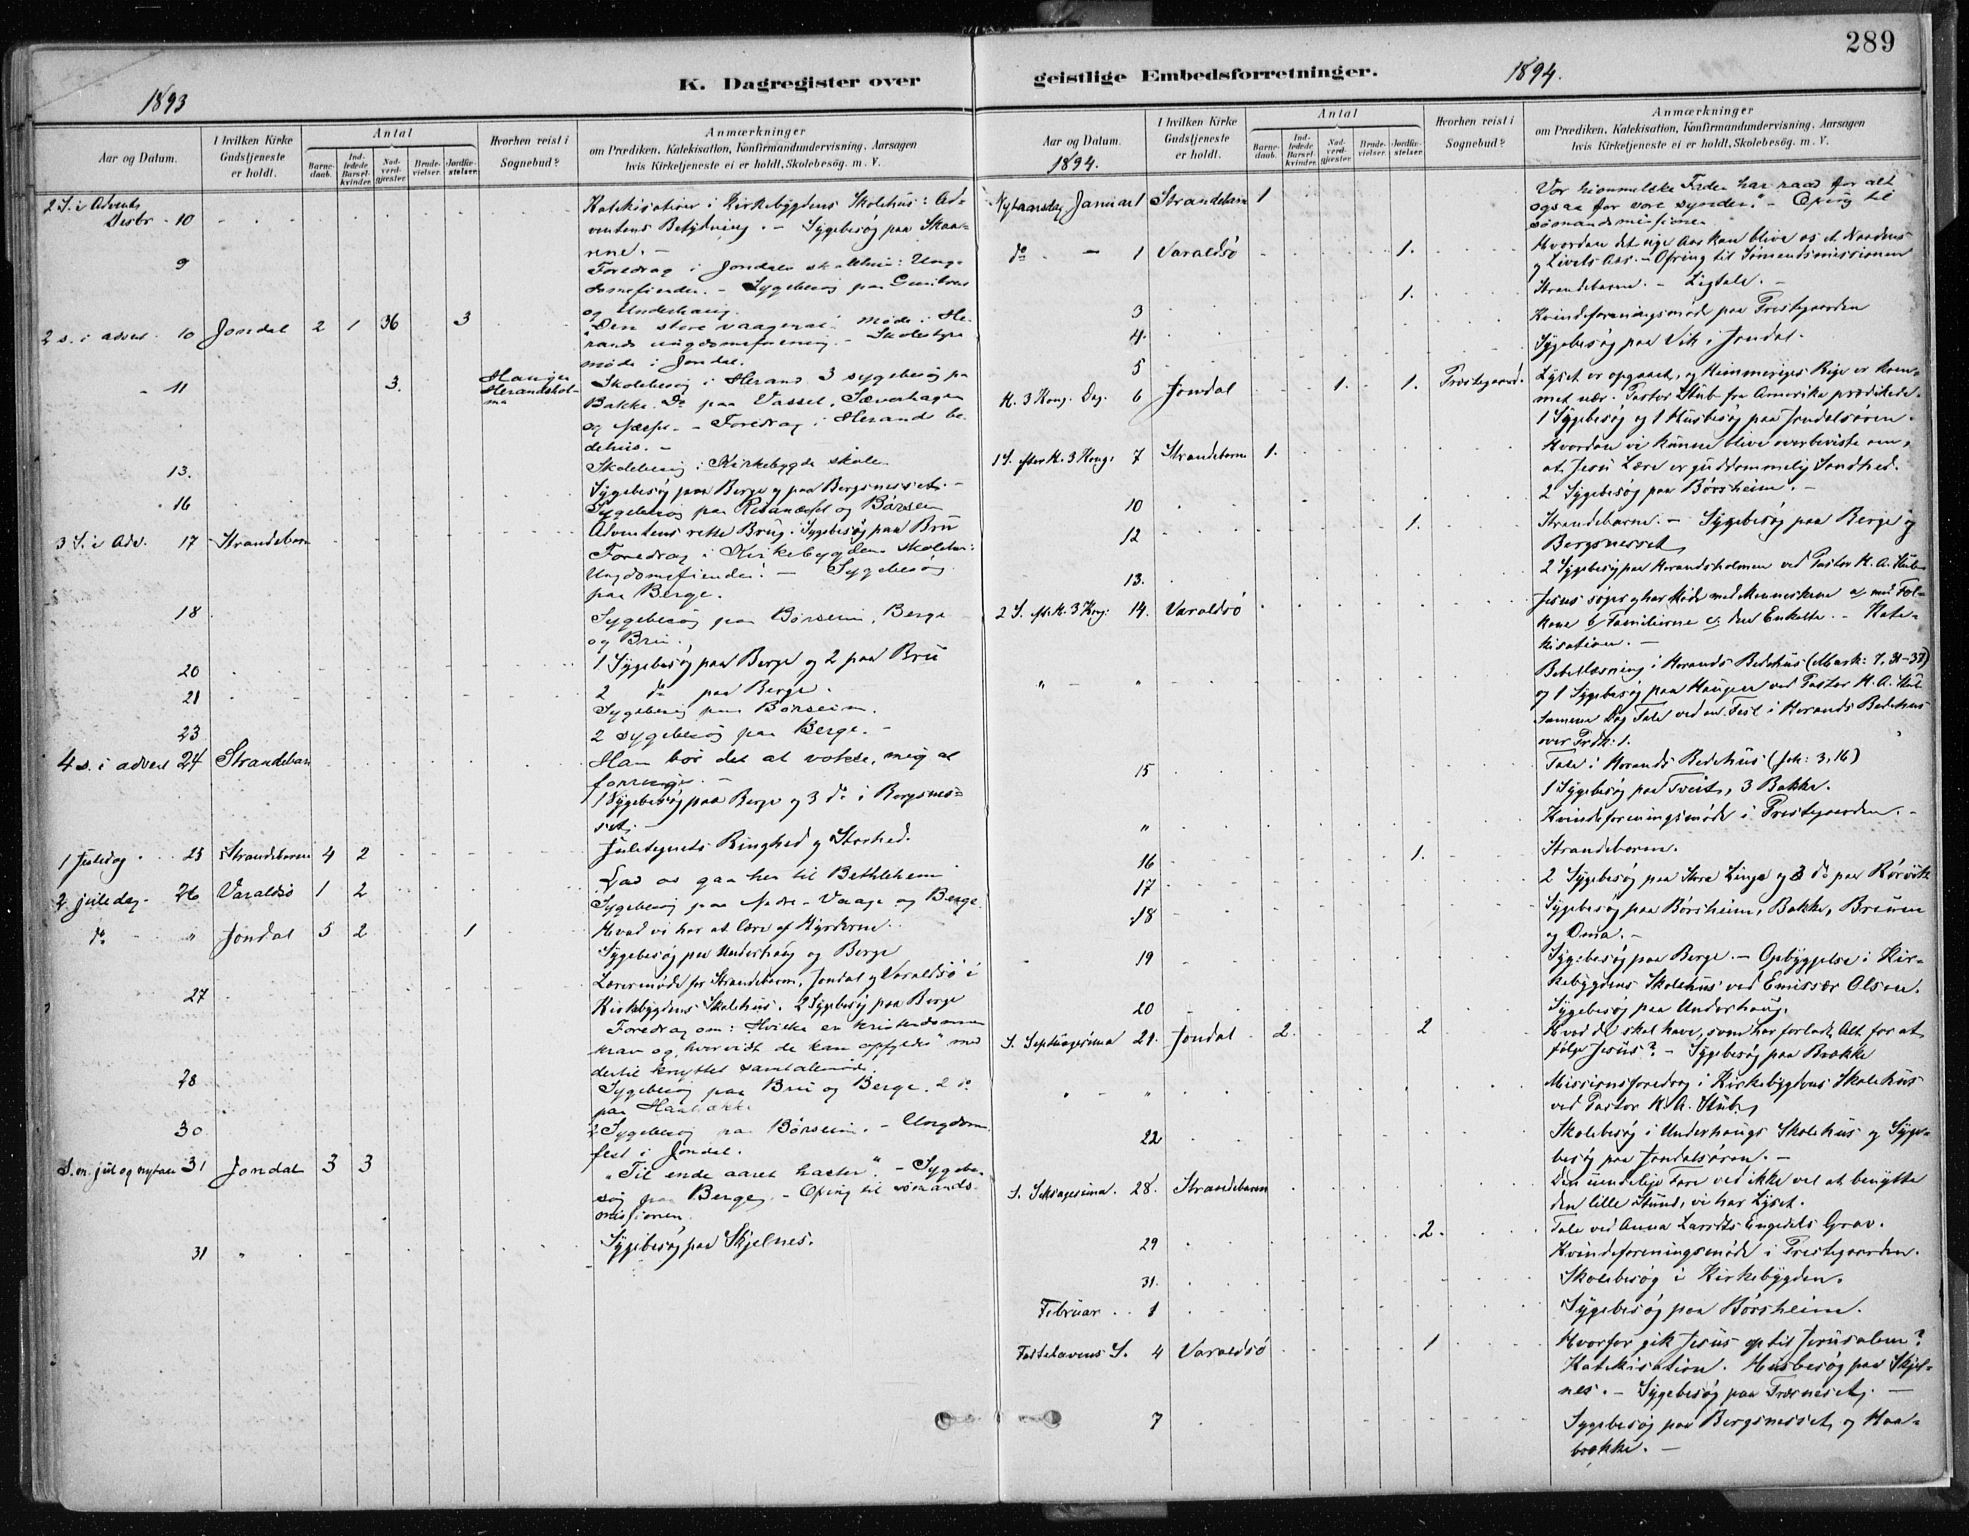 289
K. Dagregister over geistlige Embedsforretninger.
1893
1894.
Aar og Datum.
I hvilken Kirke Gudstjeneste er holdt.
Antal
Barnedaab.
Indledede Barselkvinder.
Nadverdgjester
Brudevielser.
Jordfæstelser.
Hvorhen reist i Sognebud?
Anmærkninger
om Prædiken, Katekisation, Konfirmandundervisning, Aarsagen
hvis Kirketjeneste ei er holdt, Skolebesøg. m. V.
2 S. i Advents
Desbr 10 Katekisation i Kirkebygdens Skolehus: Ad-
ventens Betydning. - Sygebesøg paa
9 Foredrag i Jondals skolehus: Ung-
domsfiender. - Sygebesøg paa
og Underhaug.
2 s. i advent 10 Jondal 2 1 36 3 "Den store vaagenat" møde i He-
rands ungdomsforening. - Skolestyre
møde i Jondal.
11 3. Haugen Herandshol-
ma Skolebesøg i Herand 3 sygebesøg paa
Bakke. Do paa Vassel, Sæverhagen
og Næse. - Foredrag i Herands be-
dehus. -
13. Skolebesøg i Kirkebygds skole
Sygebesøg paa Berge og paa Bergsnesset. -
16 Sygebesøg paa og Børseim
3 S. i Adv. 17 Strandebarm Adventens rette Brug. Sygebesøg paa Bru
Foredrag i Kirkebygdens Skolehus:
Ungdomsfiender. - Sygebesøg
paa Berge.
18 Sygebesøg paa Børseim, Berge
og Bru.
20 1 Sygebesøg paa Berge og 2 paa Bru
21 2 do paa Berge.
Sygebesøg paa Børseim.
23 2 sygebesøg paa Berge. -
4 s. i advent 24 Strandebarm Ham bør det at vokse, mig at
forringes. -
1 Sygebesøg paa Berge og 3 do i Bergsnes-
set.
1 Juledag 25 Strandebarm 4 2 Juletegnets Ringhed og Storhed.
2 juledag 26 Varaldsø 1 2 Lad os gaa hen til Bethlehem
Sygebesøg paa Nedre-Vaage og Berge.
do " Jondal 5 2 1 Hvad vi har at lære af Hyrderne.
Sygebesøg paa Underhaug og Berge
27 Lærermøde for Strandebarm, Jondal og Varaldsø i
Kirkebygdens Skolehus. 2 Sygebesøg paa Berge
Foredrag om: Hvilke er kristendommens
krav og hvorvidt de kan opfyldes" med
dertil knyttet samtalemøde.
28 Sygebesøg paa Bru og Berge. 2 do
paa Haabække
30 2 Sygebesøg paa Børseim. - Ungdoms
fest i Jondal.
S. m. jul og nytaar 31 Jondal 3 3 "Til ende aaret haster". - Sygebe-
søg paa Berge. - Ofring til sømands-
missionen.
31 " Sygebesøg paa Skjelnes.
Aar og Datum.
1894.
I hvilken Kirke Gudstjeneste er holdt.
Antal
Barnedaab.
Indledede Barselkvinder.
Nadverdgjester
Brudevielser.
Jordfæstelser.
Hvorhen reist i Sognebud?
Anmærkninger
om Prædiken, Katekisation, Konfirmandundervisning, Aarsagen
hvis Kirketjeneste ei er holdt, Skolebesøg. m. V.
Nytaarsdag Januar 1 Strandebarm 1 Vor himmelske Fader har raad for alt
ogsaa for vore synder." - Ofring til
sømandsmissionen
do - 1 Varaldsø 1. Hvordan det nye Aar kan blive os et Naadens
og Livets Aar. - Ofring til Sømandsmissionen
1. Strandebarm. - Ligtale. -
3 Kvindeforeningsmøde paa Prestegaarden
4. Sygebesøg paa Vik i Jondal.
5
H. 3 Kong. Dag. 6 Jondal 1. 1. Prestegaard. Lyset er opgaaet, og Himmeriges Rige er kom-
met nær. Pastor Stub fra Amerika prædikede.
1 Sygebesøg og 1 Husbesøg paa Jondalsøren.
1 S. efter H. 3 Kong. 7 Strandebarm 1. Hvordan vi kunne blive overbeviste om,
at Jesu Lære er guddommelig Sandhed.
10 2 Sygebesøg paa Børsheim. -
12 1. Strandebarm. - Sygebesøg paa Berge og
Bergsnesset,
13. 2 Sygebesøg paa Herandsholmen ved Pastor H. A. Stub
2 S. eft. H. 3 Kong. 14. Varaldsø Jesus søger og har Møde med Menneskene a) med Fol-
kene b) Familierne c) den Enkelte. - Kate-
kisation. -
" - " Bibellæsning i Herands Bedehus (Mark: 7, 31-37)
og 1 Sygebesøg paa Haugen ved Pastor H. A. Stub
Samme Dag Tale ved en Fest i Herands Bedehus
over
15 Tale i Herands Bedehus (Joh: 3,16)
1 Sygebesøg paa Tveit, 3 Bakke.
" Kvindeforeningsmøde i Prestegaarden. -
16 1. Strandebarm.
17 2 Sygebesøg paa Store Linge og 3 do paa Rørvik
18 Sygebesøg paa Børsheim, Bakke, Bruen
og Oma. -
19 Sygebesøg paa Berge. - Opbyggelse i Kir-
kebygdens Skolehus ved Emissær Olsen.
20 Sygebesøg paa Underhaug.
S. Septuagesima 21. Jondal 2. 2 Hvad de skal have, som har forladt Alt for at
følge Jesus? - Sygebesøg paa Brække
" - " Missionsforedrag i Kirkebygdens Skolehus
ved Pastor H. A. Stub,
22 Skolebesøg i Underhaugs Skolehus og Syge-
besøg paa Jondalsøren. -
S. Seksagesima. 28. Strandebarm Den uendelige Fare ved ikke vel at benytte
den lille Stund, vi har Lyset.
2. Tale ved Anna Larsdts Engedels Grav.
29 Kvindeforeningsmøde i Prestegaarden.
31. Skolebesøg i Kirkebygden.
Februar 1 Sygebesøg paa Børsheim.
Fastelavens S. 4 Varaldsø 1 Hvorfor gik Jesus op til Jerusalem?
Katekisation. Husbesøg paa Skjel-
nes. - Sygebesøg paa Træneset. -
7 Sygebesøg paa Bergsnesset, og Haa-
bække. -